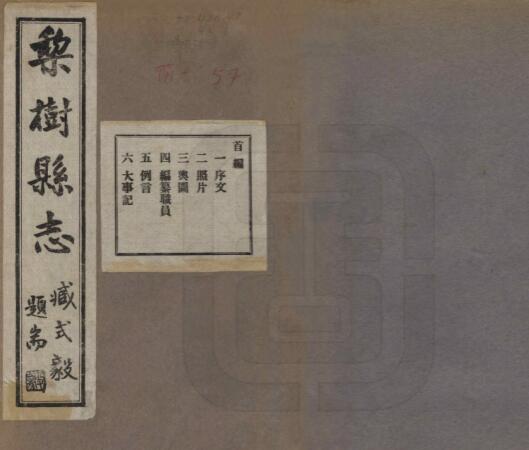 梨樹縣志
臧式毅
題耑
首編
一 序文
二 照片
三 輿圖
四 編纂職員
五 例言
六 大事記
57